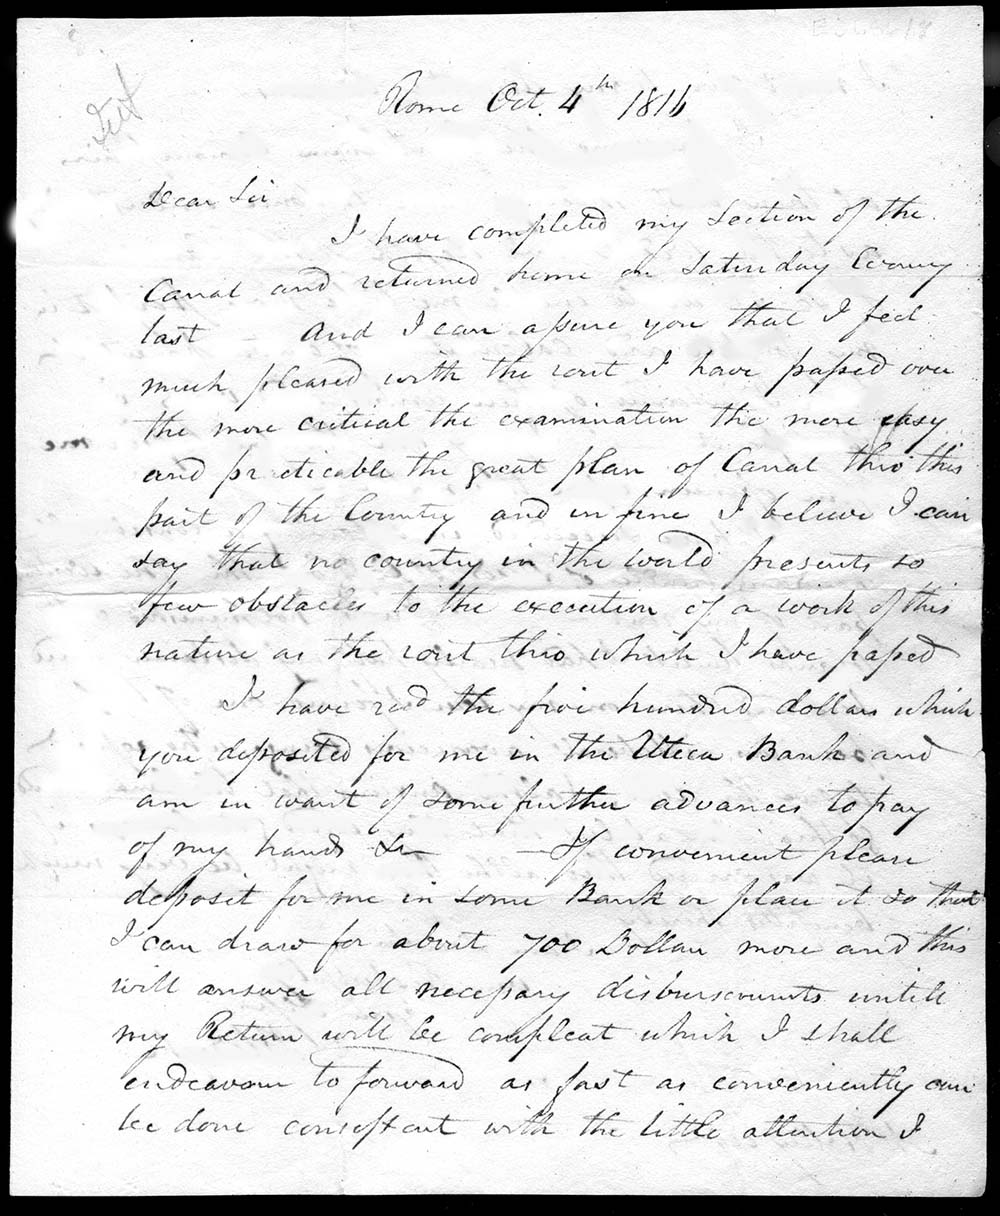 Rome Oct. 4th 1816
Dear Sir
I have completed my Section of the
Canal and returned home on Saturday Evening
last — And I can assure you that I feel
much pleased with the rout I have passed over
the more critical the examination the more easy
and practicable the great plan of Canal thro' this
part of the Country and in fine I believe I can
say that no country in the world presents so
few obstacles to the execution of a work of this
nature as the rout thro which I have passed
I have recd the five hundred dollars which
you deposited for me in the Uteca Bank and
am in want of some further advances to pay
of my hands &c — If convenient please
deposit for me in some Bank or place it so that
I can draw for about 700 Dollars more and this
will answer all necessary disbursements untill
my Return will be compleat which I shall
endeavour to forward as fast as conveniently can
be done consistant with the little attention I